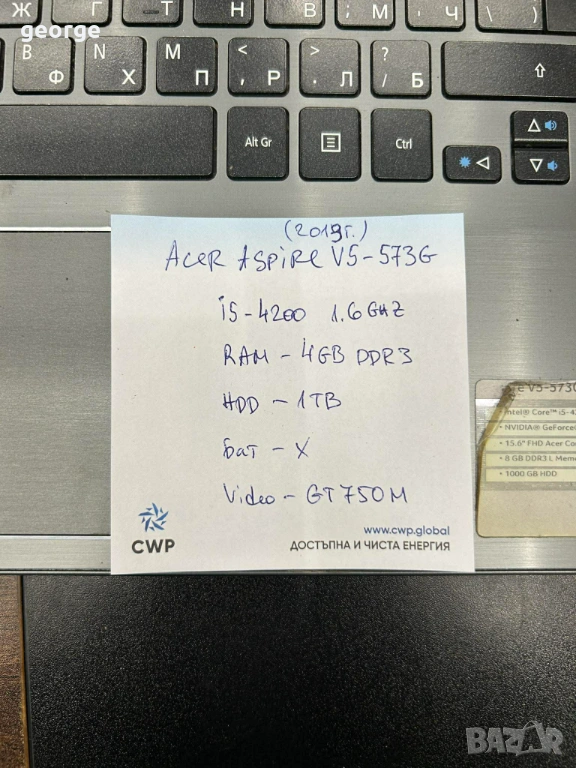 george
Ж Г Т Н М Ч
B Ф
N Х
M П
< , Р
> . Л
? / Б
⇧
Alt Gr
Ctrl
(2013г.)
Acer Aspire V5-573G
i5-4200 1.6 GHz
RAM - 4GB DDR3
HDD - 1TB
Бат - X
Video - GT750M
CWP
www.cwp.global
ДОСТЪПНА И ЧИСТА ЕНЕРГИЯ
V5-573G
Intel® Core™ i5-4
• NVIDIA® GeForce
• 15.6" FHD Acer Co
• 8 GB DDR3 L Mem
• 1000 GB HDD
BAZAR